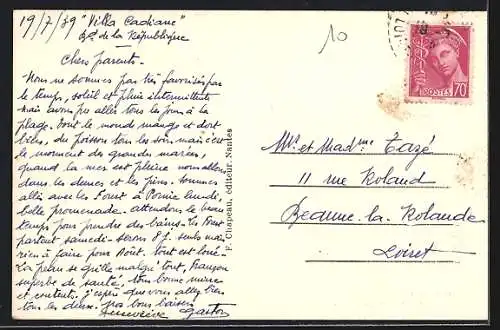 19/7/39 "Villa Cadiane"
Bd de la République
Chers parents -
Nous ne sommes pas très favorisés par
le temps, soleil et pluie intermittents
mais avons pu aller tous les jours à la
plage. Tout le monde mange et dort
bien, du poisson tous les soirs mais c'est
le moment des grandes marées,
quand la mer est pleine nous allons
dans les dunes et les pins. sommes
allés avec les Foret à Pornic lundi,
belle promenade. attendons le beau
temps pour prendre des bains. les Foret
partent samedi - serons 8 j. seuls mais
rien à faire pour Août. tout est loué.
La peau se grille malgré tout, Françoise
superbe de santé. tous bonne mine
et contents. j'espère que vous allez bien
tous les deux. gros bons baisers
Geneviève Gaston
F. Chapeau, éditeur, Nantes
10
POSTES 70c
Mr et Madme Tazé
11 rue Roland
Beaune-la-Rolande
Loiret